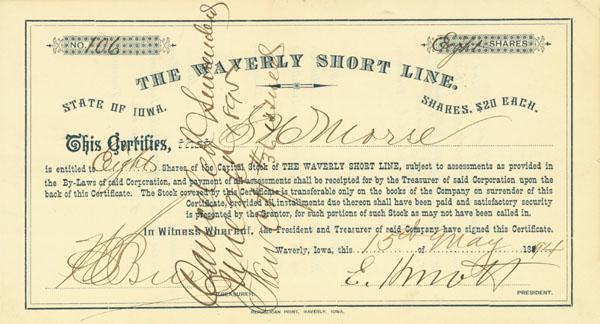 NO. 106
Eight SHARES
THE WAVERLY SHORT LINE.
STATE OF IOWA.
SHARES, $20 EACH.
This Certifies, THAT Morse
is entitled to Eight Shares of the Capital Stock of THE WAVERLY SHORT LINE, subject to assessments as provided in
the By-Laws of said Corporation, and payment of all assessments shall be receipted for by the Treasurer of said Corporation upon the
back of this Certificate. The Stock covered by this Certificate is transferable only on the books of the Company on surrender of this
Certificate, provided all installments due thereon shall have been paid and satisfactory security
is presented by the Grantor, for such portions of such Stock as may not have been called in.
In Witness Whereof, the President and Treasurer of said Company have signed this Certificate.
Waverly, Iowa, this 15th May 18
TREASURER.
E. Knott
PRESIDENT.
REPUBLICAN PRINT, WAVERLY, IOWA.